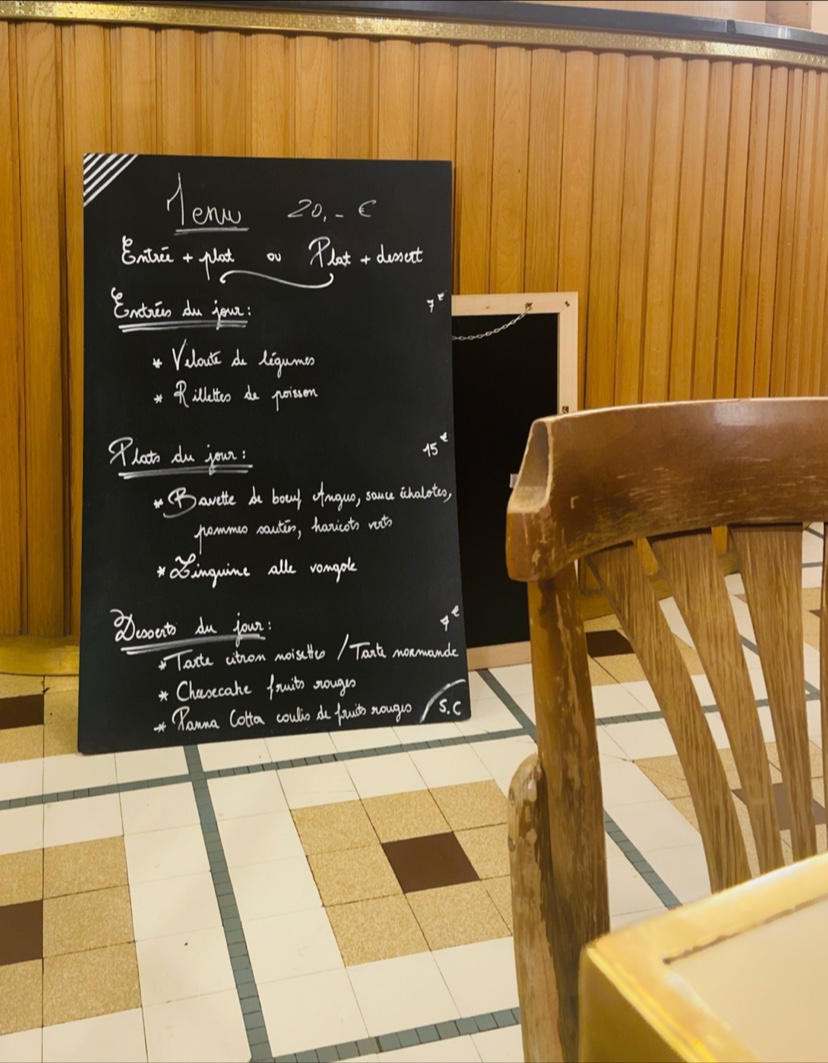 Menu 20,- €
Entrée + plat ou Plat + dessert
Entrées du jour : 7€
* Velouté de légumes
* Rillettes de poisson
Plats du jour : 15€
* Bavette de bœuf Angus, sauce échalotes,
pommes sautés, haricots verts
* Linguine alle vongole
Desserts du jour : 7€
* Tarte citron noisettes / Tarte normande
* Cheesecake fruits rouges
* Panna Cotta coulis de fruits rouges
S.C